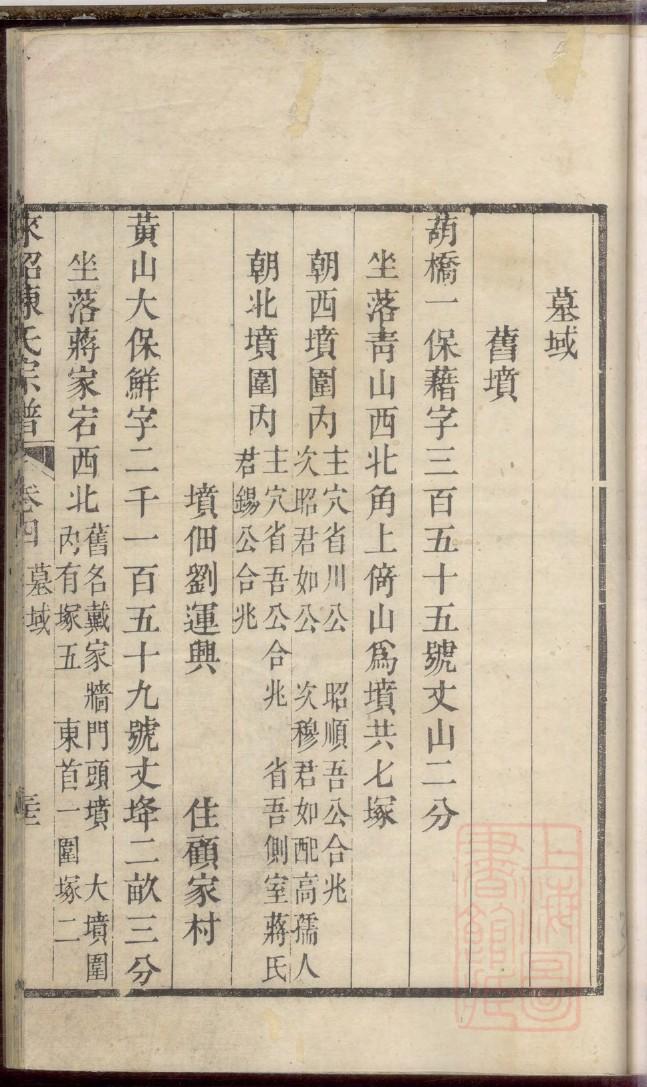 墓域
舊墳
葫橋一保藉字三百五十五號丈山二分
坐落青山西北角上倚山爲墳共七塚
朝西墳圍内
主穴省川公 昭順吾公合兆
次昭君如公 次穆君如配高孺人
朝北墳圍内
主穴省吾公合兆 省吾側室蔣氏
君錫公合兆
墳佃劉運興 住顧家村
黃山大保鮮字二千一百五十九號丈埄二畝三分
坐落蔣家宕西北
舊名戴家牆門頭墳 大墳圍
内有塚五 東首一圍塚二
陳氏宗譜
卷四
墓域
上海圖書館藏